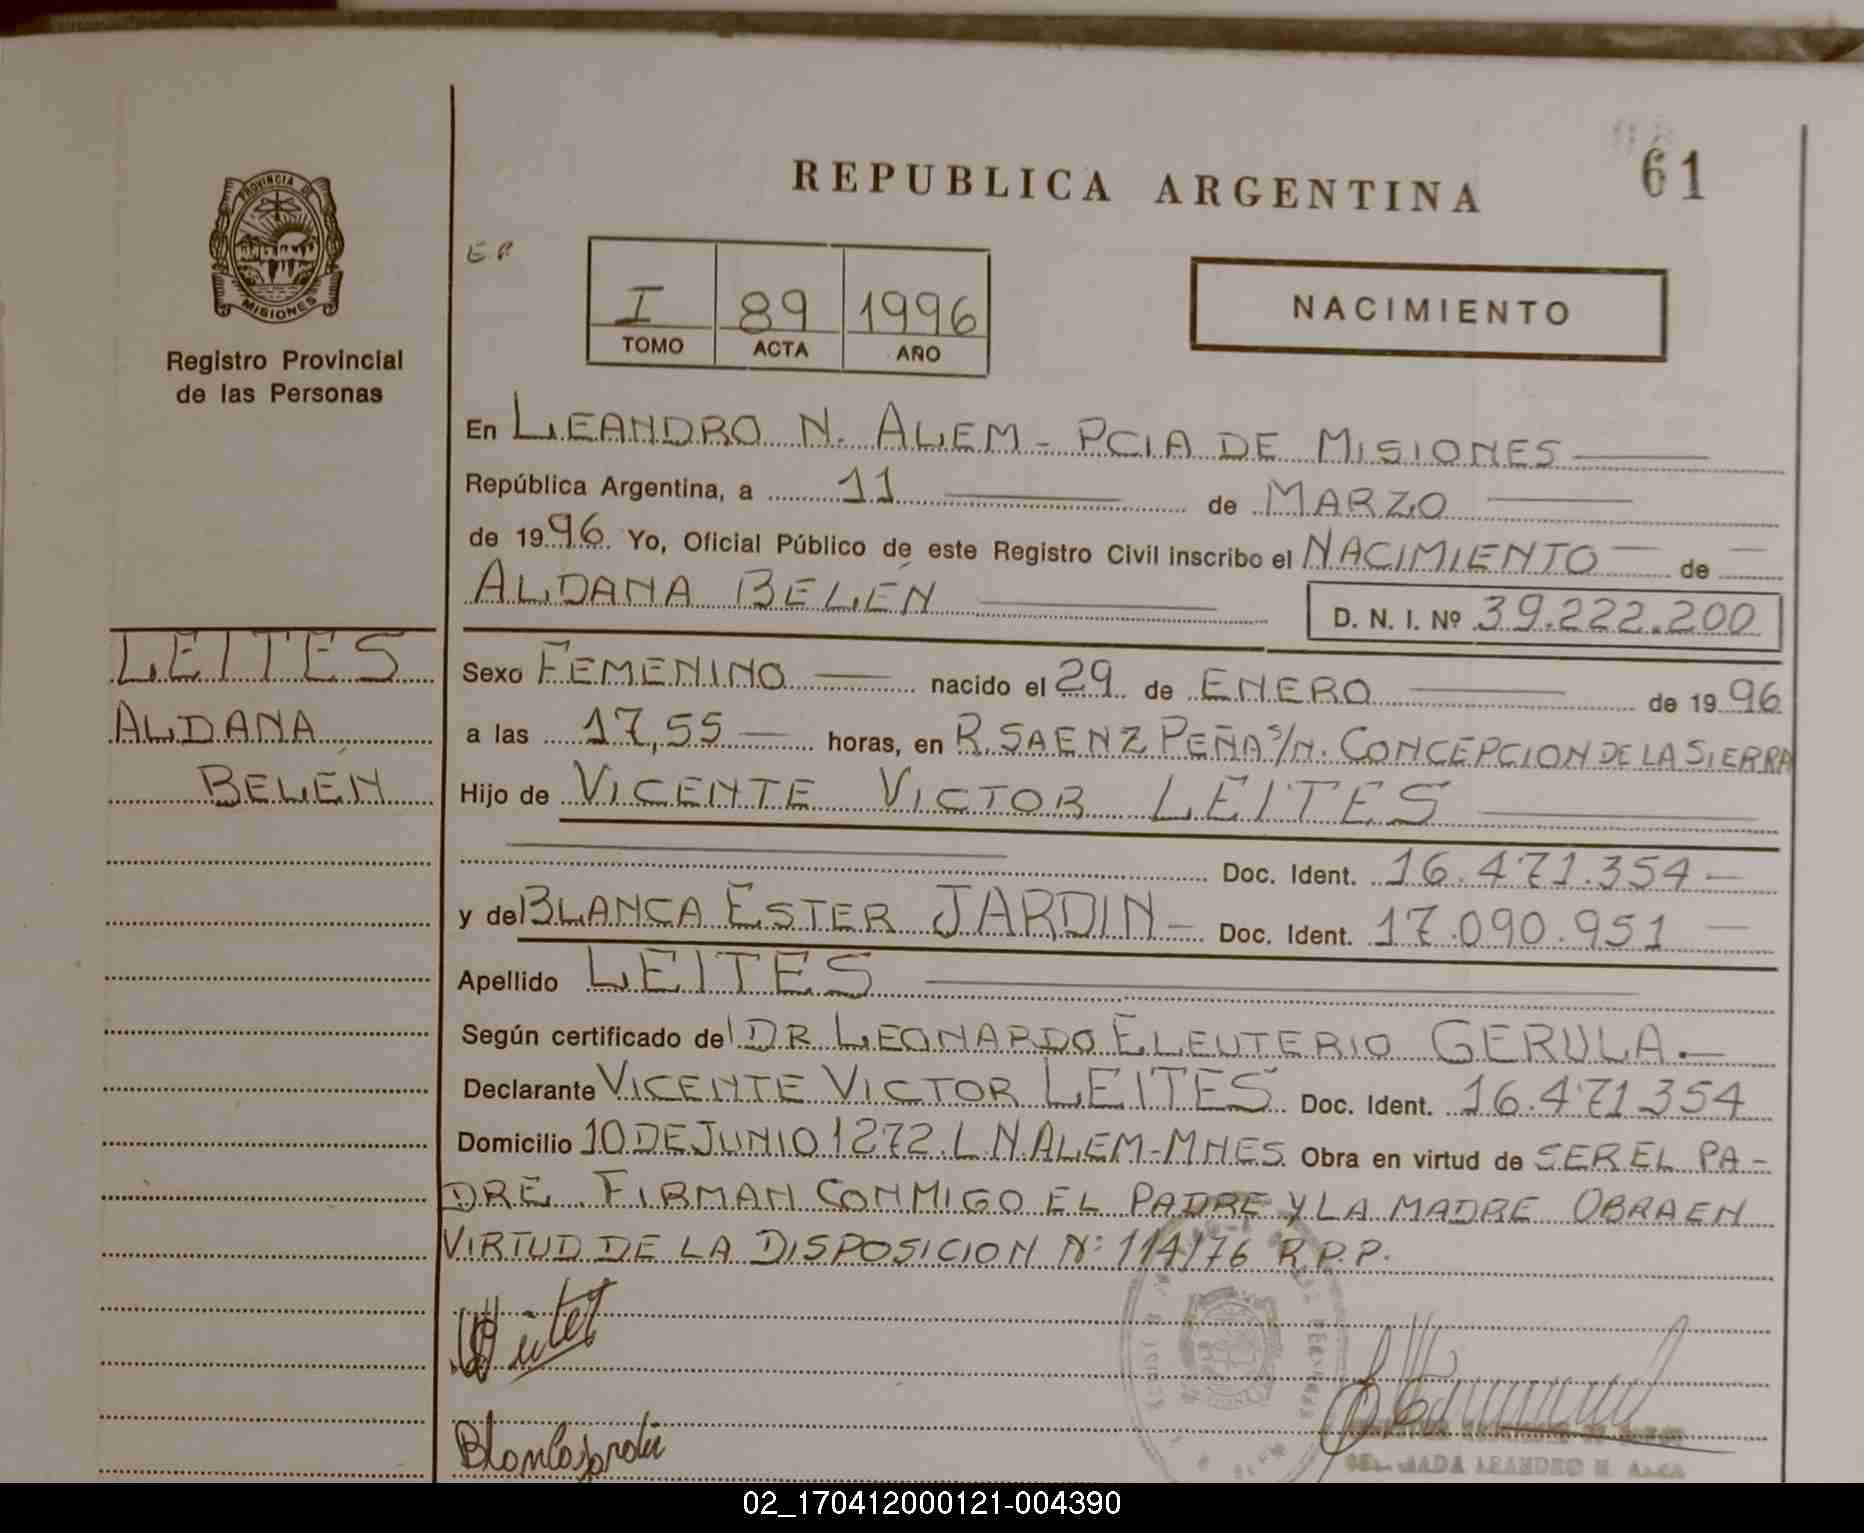 REPUBLICA ARGENTINA
61
PROVINCIA DE
MISIONES
Registro Provincial
de las Personas
E.P
I 89 1996
TOMO ACTA AÑO
NACIMIENTO
En LEANDRO N. ALEM - PCIA DE MISIONES
República Argentina, a 11 de MARZO
de 1996. Yo, Oficial Público de este Registro Civil inscribo el NACIMIENTO de
ALDANA BELÉN
D. N. I. Nº 39.222.200
LEITES
ALDANA
BELÉN
Sexo FEMENINO nacido el 29 de ENERO de 1996
a las 17,55 horas, en R. SAENZ PEÑA S/N. CONCEPCION DE LA SIERRA
Hijo de VICENTE VICTOR LEITES
Doc. Ident. 16.471.354-
y de BLANCA ESTER JARDIN - Doc. Ident. 17.090.951
Apellido LEITES
Según certificado del DR LEONARDO ELEUTERIO GERULA.
Declarante VICENTE VICTOR LEITES Doc. Ident. 16.471354
Domicilio 10 DE JUNIO 1272. L.N.ALEM-MNES Obra en virtud de SER EL PA-
DRE. FIRMAN CONMIGO EL PADRE Y LA MADRE OBRA EN
VIRTUD DE LA DISPOSICION Nº 114/76 R.P.P.
Blanca Jardin
02_170412000121-004390